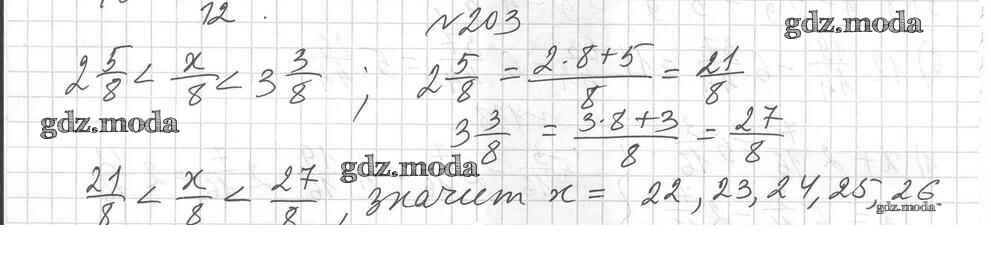 12.
№203
gdz.moda
2 5/8 < x/8 < 3 3/8 ; 2 5/8 = (2·8+5)/8 = 21/8
gdz.moda
3 3/8 = (3·8+3)/8 = 27/8
gdz.moda
21/8 < x/8 < 27/8, значит x = 22, 23, 24, 25, 26.
gdz.moda